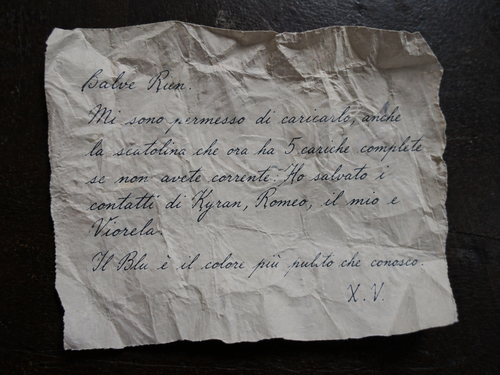 Salve Run.
Mi sono permesso di caricarlo, anche
la scatolina che ora ha 5 cariche complete
se non avete corrente. Ho salvato i
contatti di Kyran, Romeo, il mio e
Viorela.
Il Blu è il colore più pulito che conosco.
X. V.